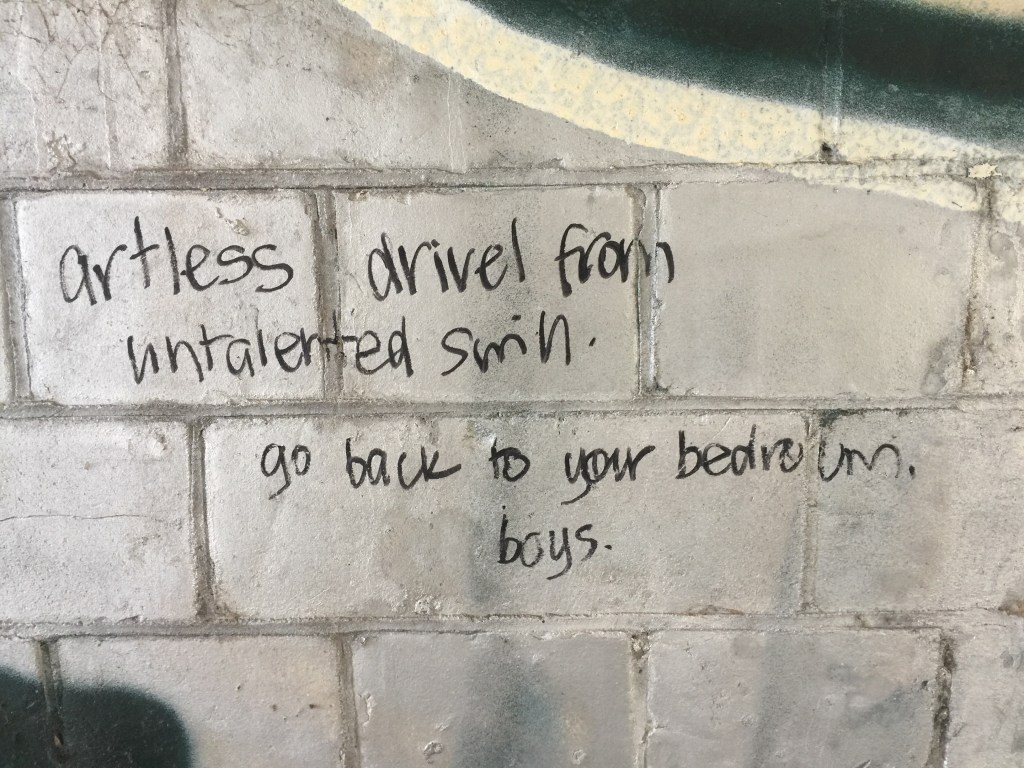 artless drivel from
untalented
go back to your bedroom.
boys.